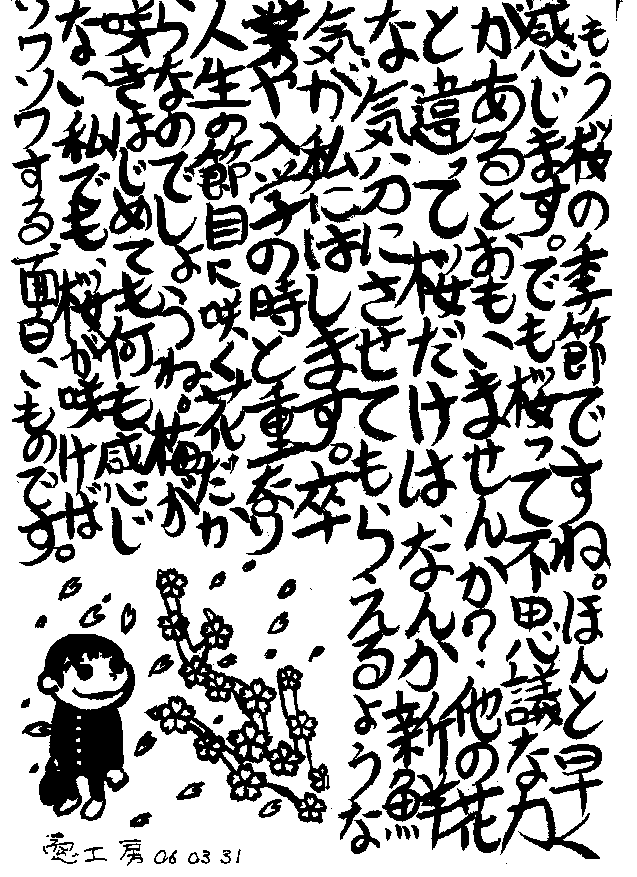 もう桜の季節ですね。ほんと早く
感じます。でも桜って不思議な力
があるとおもいませんか?他の花
と違って桜だけは、なんか新鮮
な気分にさせてもらえるような
気が私にはします。卒
業や入学の時と重なり
人生の節目に咲く花だか
らなのでしょうね。梅が
咲きはじめても何も感じ
ない私でも、桜が咲けば
ソワソワする、面白いものです。
工房 06 03 31